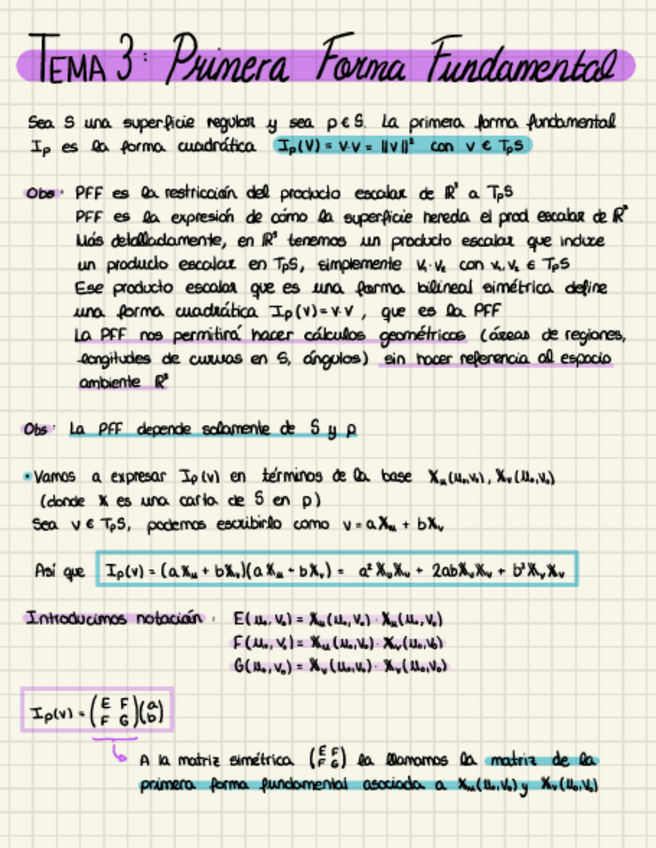 TEMA 3: Primera Forma Fundamental
Sea S una superficie regular y sea p ∈ S. La primera forma fundamental
Ip es la forma cuadrática Ip(V) = V·V = ‖V‖² con v ∈ TpS
Obs: PFF es la restricción del producto escalar de ℝ³ a TpS
PFF es la expresión de cómo la superficie hereda el prod escalar de ℝ³
Más detalladamente, en ℝ³ tenemos un producto escalar que induce
un producto escalar en TpS, simplemente v₁·v₂ con v₁,v₂ ∈ TpS
Ese producto escalar que es una forma bilineal simétrica define
una forma cuadrática Ip(v)=v·v, que es la PFF
La PFF nos permitirá hacer cálculos geométricos (áreas de regiones,
longitudes de curvas en S, ángulos) sin hacer referencia al espacio
ambiente ℝ³
Obs: La PFF depende solamente de S y p
• Vamos a expresar Ip(v) en términos de la base 𝕏u(u₀,v₀), 𝕏v(u₀,v₀)
(donde 𝕏 es una carta de S en p)
Sea v ∈ TpS, podemos escribirlo como v = a𝕏u + b𝕏v
Así que Ip(v) = (a𝕏u + b𝕏v)(a𝕏u + b𝕏v) = a²𝕏u𝕏u + 2ab𝕏u𝕏v + b²𝕏v𝕏v
Introducimos notación: E(u₀,v₀) = 𝕏u(u₀,v₀) · 𝕏u(u₀,v₀)
F(u₀,v₀) = 𝕏u(u₀,v₀) · 𝕏v(u₀,v₀)
G(u₀,v₀) = 𝕏v(u₀,v₀) · 𝕏v(u₀,v₀)
Ip(v) = (E F
F G)(a
b)
A la matriz simétrica (E F
F G) la llamamos la matriz de la
primera forma fundamental asociada a 𝕏u(u₀,v₀) y 𝕏v(u₀,v₀)